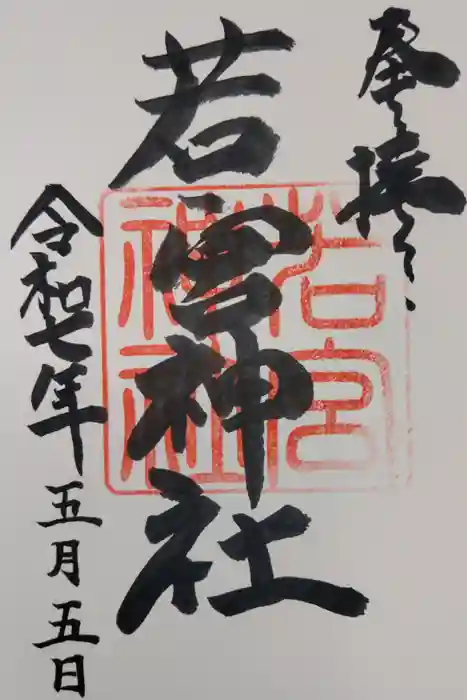 若宮神社
若宮
神社
令和七年五月五日